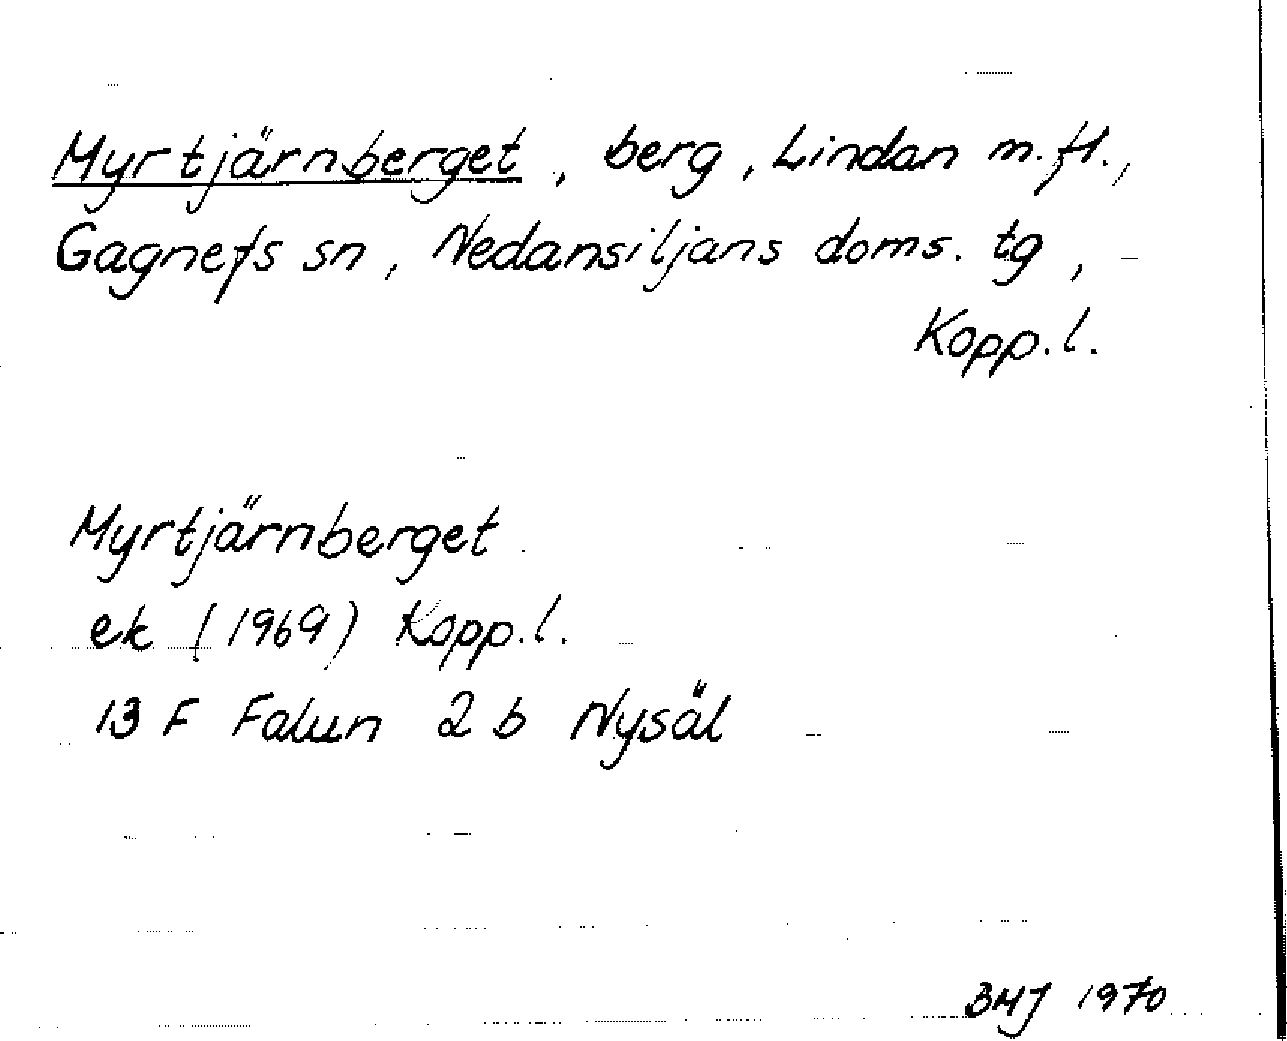 Myrtjärnberget, berg, Lindan m.fl.,
Gagnefs sn, Nedansiljans doms. tg,
Kopp.l.
Myrtjärnberget
ek (1969) Kopp.l.
13 F Falun 2 b Nysäl
BMJ 1970